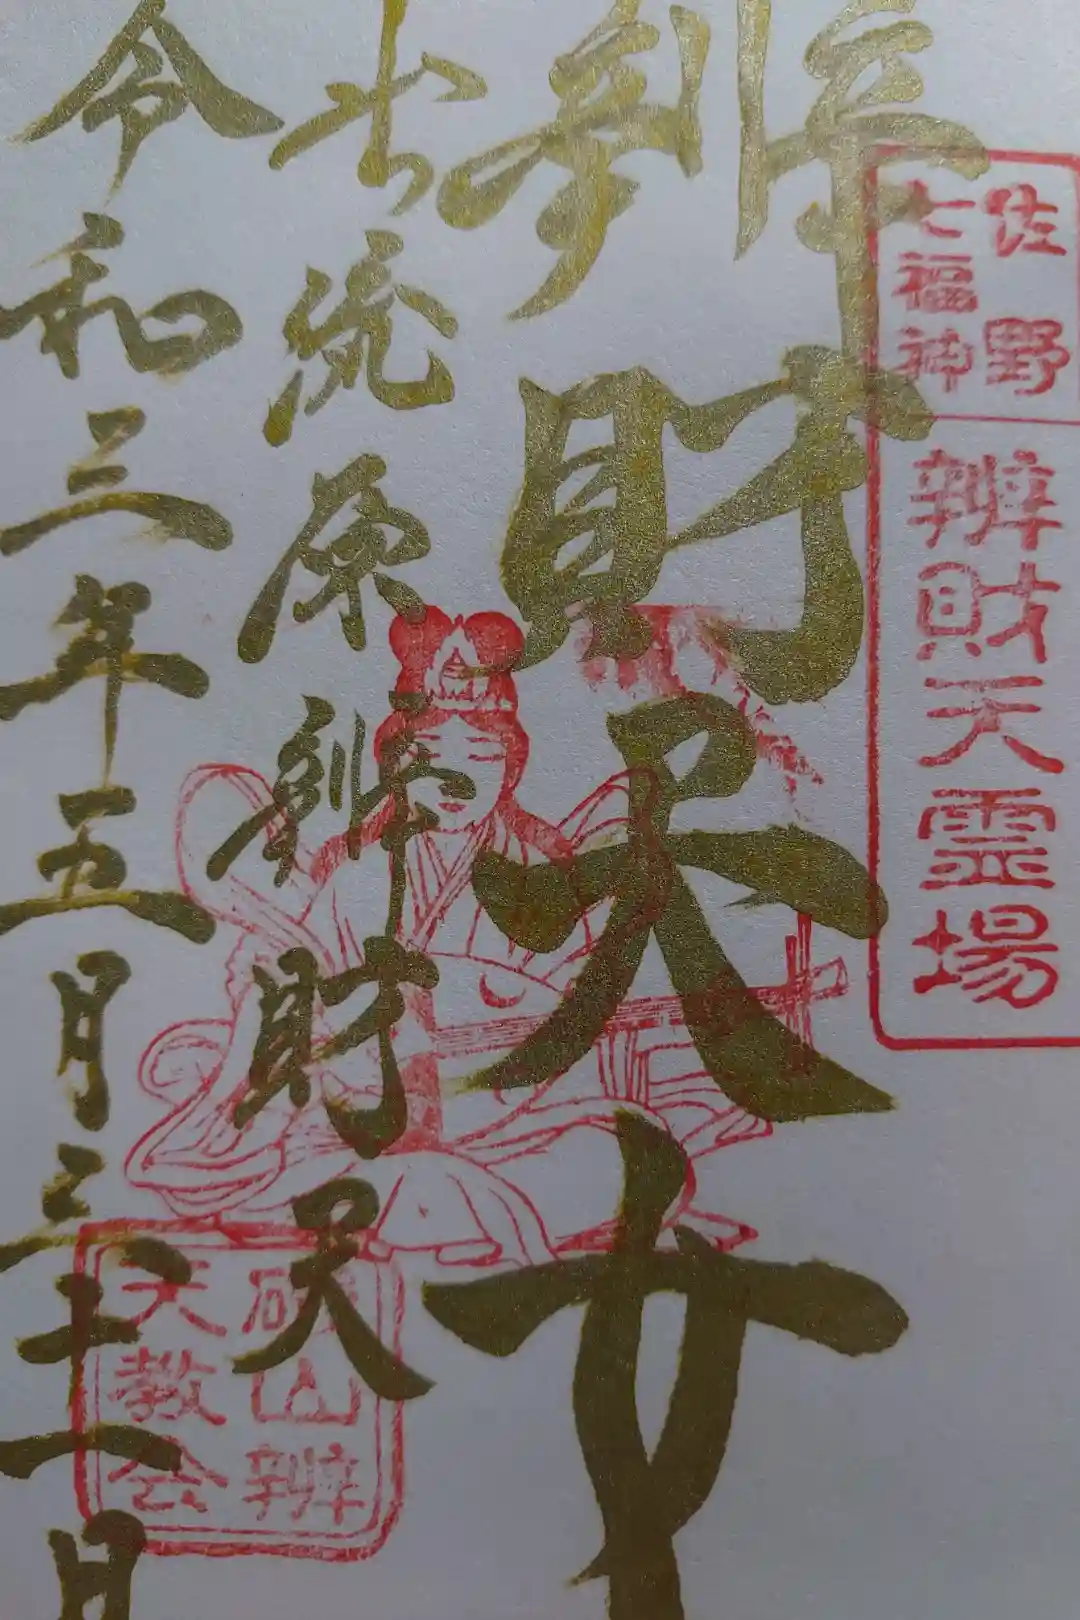 佐野
七福神
辨財天霊場
辨財天女
出流原辨財天
令和三年五月三十一日
磯山辨
天教会